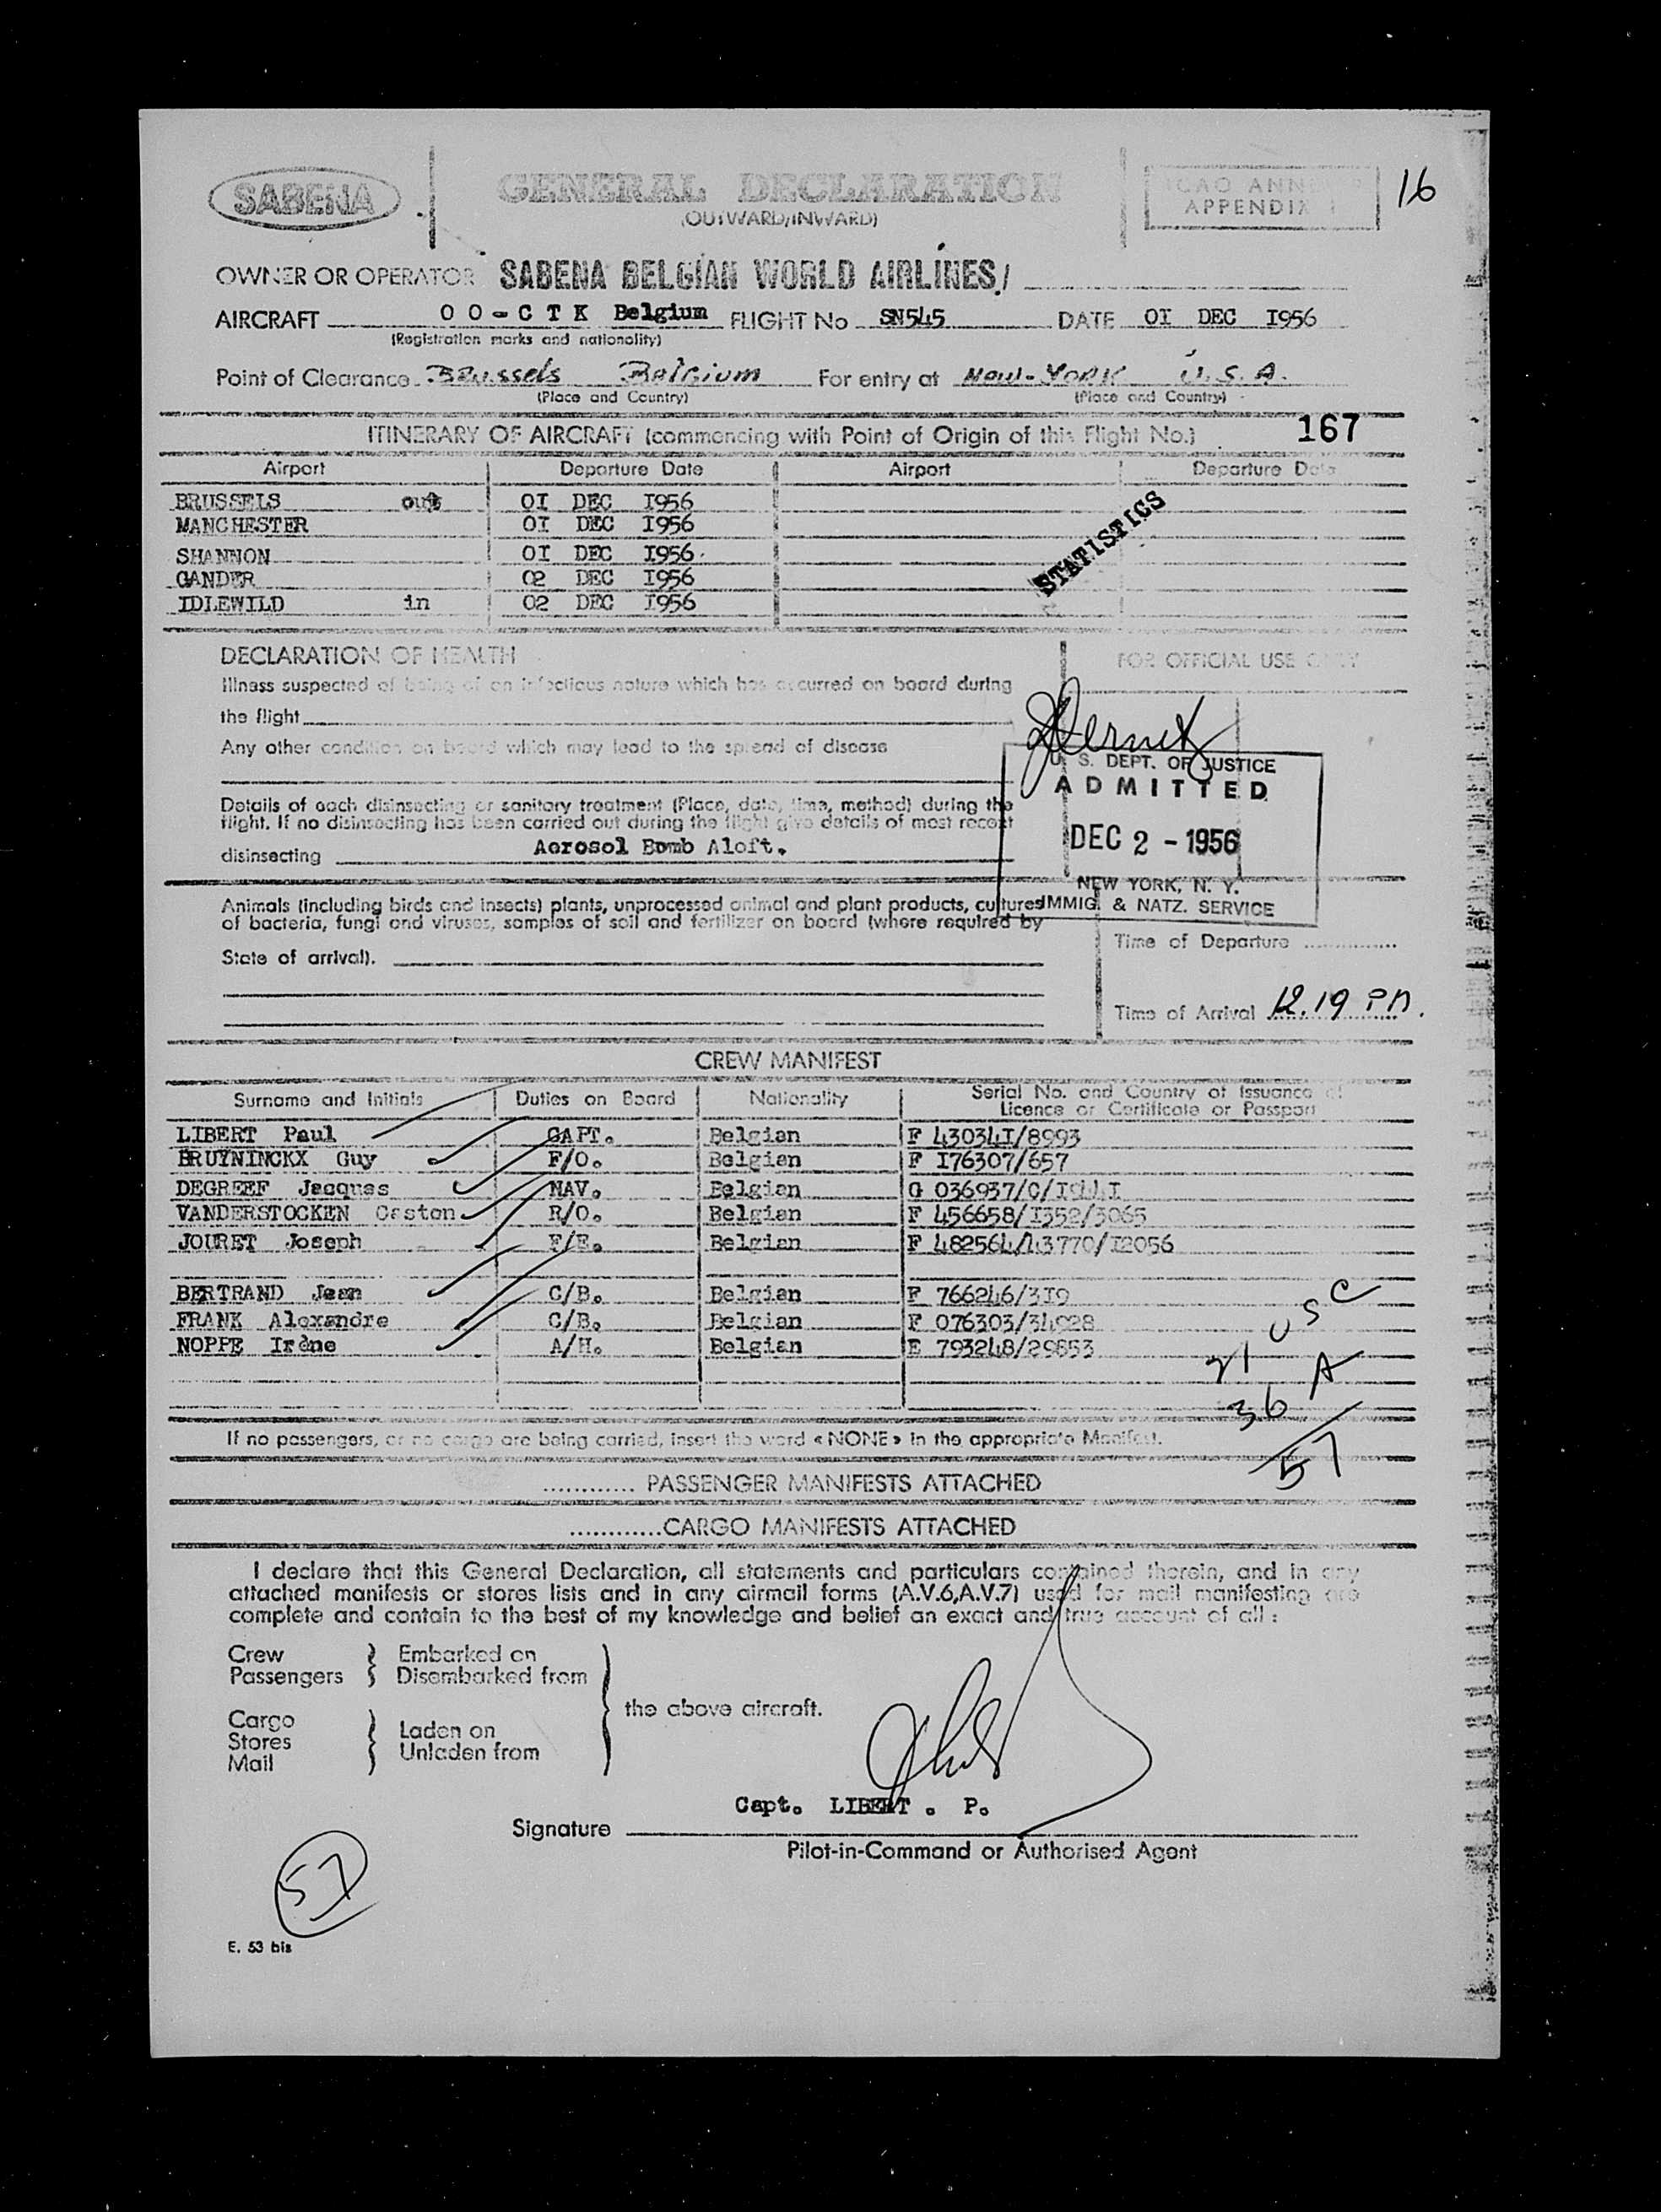 SABENA
GENERAL DECLARATION
(OUTWARD/INWARD)
ICAO ANN
APPENDIX 1
16
OWNER OR OPERATOR SABENA BELGIAN WORLD AIRLINES/
AIRCRAFT OO-CTK Belgium FLIGHT No SN545 DATE OI DEC I956
(Registration marks and nationality)
Point of Clearance Brussels Belgium For entry at New-York U.S.A.
(Place and Country) (Place and Country)
ITINERARY OF AIRCRAFT (commencing with Point of Origin of this Flight No.) 167
Airport Departure Date Airport Departure Date
BRUSSELS out OI DEC I956
MANCHESTER OI DEC I956
SHANNON OI DEC I956
GANDER 02 DEC I956
IDLEWILD in 02 DEC I956
STATISTICS
DECLARATION OF HEALTH
FOR OFFICIAL USE ONLY
Illness suspected of being of an infectious nature which has occurred on board during
the flight
Any other condition on board which may lead to the spread of disease
U. S. DEPT. OF JUSTICE
ADMITTED
DEC 2 - 1956
NEW YORK, N. Y.
IMMIG. & NATZ. SERVICE
Details of each disinsecting or sanitary treatment (Place, date, time, method) during the
flight. If no disinsecting has been carried out during the flight give details of most recent
disinsecting Aerosol Bomb Aloft.
Animals (including birds and insects) plants, unprocessed animal and plant products, cultures
of bacteria, fungi and viruses, samples of soil and fertilizer on board (where required by
State of arrival).
Time of Departure
Time of Arrival 12.19 PM.
CREW MANIFEST
Surname and Initials Duties on Board Nationality Serial No. and Country of Issuance of
Licence or Certificate or Passport
LIBERT Paul CAPT. Belgian F 43034I/8993
BRUYNINCKX Guy F/O. Belgian F I76307/657
DEGREEF Jacques NAV. Belgian G 036937/C/I944I
VANDERSTOCKEN Gaston R/O. Belgian F 456658/I352/3065
JOURET Joseph F/E. Belgian F 482564/43770/I2056
BERTRAND Jean C/B. Belgian F 766246/3I9
FRANK Alexandre C/B. Belgian F 076303/34928
NOPPE Irène A/H. Belgian E 793248/29853
21 USC
36 A
57
If no passengers, or no cargo are being carried, insert the word «NONE» in the appropriate Manifest.
............. PASSENGER MANIFESTS ATTACHED
............CARGO MANIFESTS ATTACHED
I declare that this General Declaration, all statements and particulars contained therein, and in any
attached manifests or stores lists and in any airmail forms (A.V.6,A.V.7) used for mail manifesting are
complete and contain to the best of my knowledge and belief an exact and true account of all :
Crew Embarked on
Passengers Disembarked from
the above aircraft.
Cargo
Stores Laden on
Mail Unladen from
Capt. LIBERT . P.
Signature
Pilot-in-Command or Authorised Agent
57
E. 53 bis